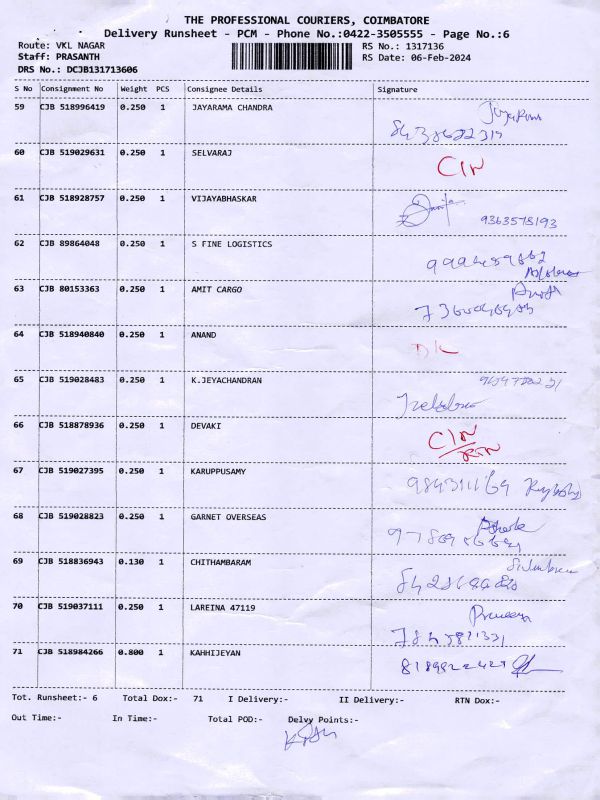 THE PROFESSIONAL COURIERS, COIMBATORE
Delivery Runsheet - PCM - Phone No.:0422-3505555 - Page No.:6
Route: VKL NAGAR RS No.: 1317136
Staff: PRASANTH RS Date: 06-Feb-2024
DRS No.: DCJB131713606
S No Consignment No Weight PCS Consignee Details Signature
59 CJB 518996419 0.250 1 JAYARAMA CHANDRA
60 CJB 519029631 0.250 1 SELVARAJ CIN
61 CJB 518928757 0.250 1 VIJAYABHASKAR 9363575193
62 CJB 89864048 0.250 1 S FINE LOGISTICS
63 CJB 80153363 0.250 1 AMIT CARGO
64 CJB 518940840 0.250 1 ANAND
65 CJB 519028483 0.250 1 K.JEYACHANDRAN
66 CJB 518878936 0.250 1 DEVAKI CIN
67 CJB 519027395 0.250 1 KARUPPUSAMY
68 CJB 519028823 0.250 1 GARNET OVERSEAS
69 CJB 518836943 0.130 1 CHITHAMBARAM
70 CJB 519037111 0.250 1 LAREINA 47119 Praveena
71 CJB 518984266 0.800 1 KAHHIJEYAN
Tot. Runsheet:- 6 Total Dox:- 71 I Delivery:- II Delivery:- RTN Dox:-
Out Time:- In Time:- Total POD:- Delvy Points:-